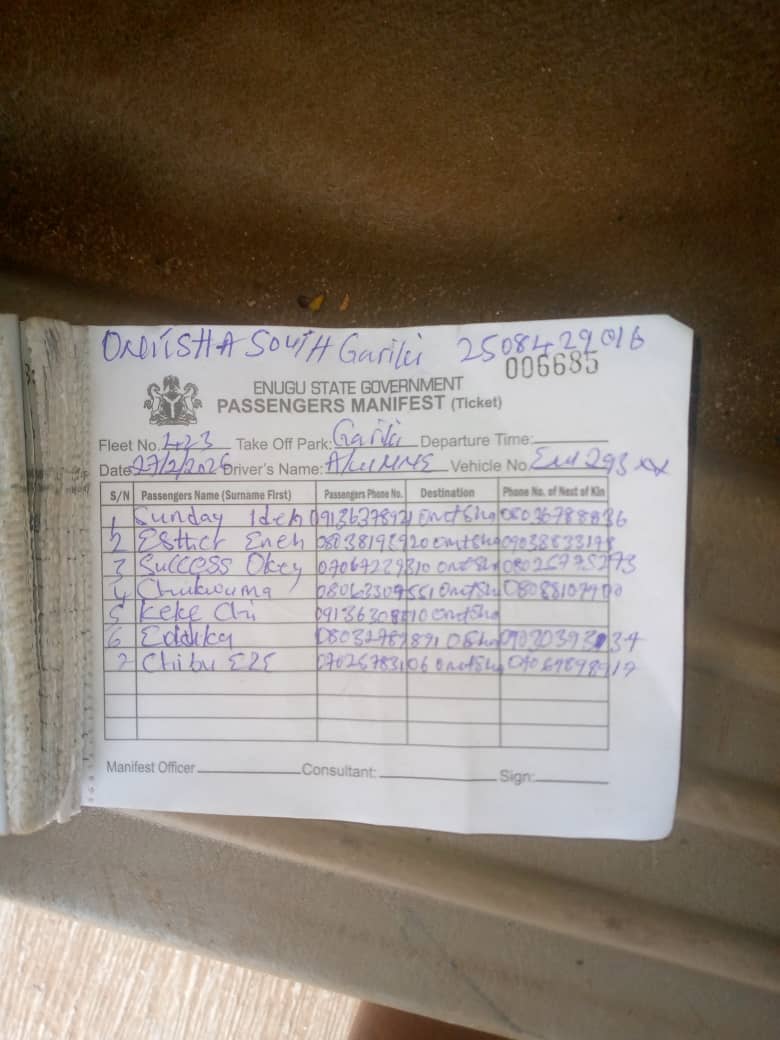 ONITSHA SOUTH Gariki 2508429016
006685
ENUGU STATE GOVERNMENT
PASSENGERS MANIFEST (Ticket)
Fleet No. 423 Take Off Park: Gariki Departure Time:
Date 27/2/2026 Driver's Name: Vehicle No. 293 XX
S/N Passengers Name (Surname First) Passengers Phone No. Destination Phone No. of Next of Kin
1 Sunday Ideh 09136378921 Onitsha 08036788836
2 Esther Eneh 08038193920 Onitsha 09038833178
3 Success Okey 07069229310 Onitsha 08025775273
4 Chukwuma 08063309551 Onitsha
5 Keke Chi Onitsha
6
7 Chibu EZE 07025783106 Onitsha
Manifest Officer Consultant: Sign: